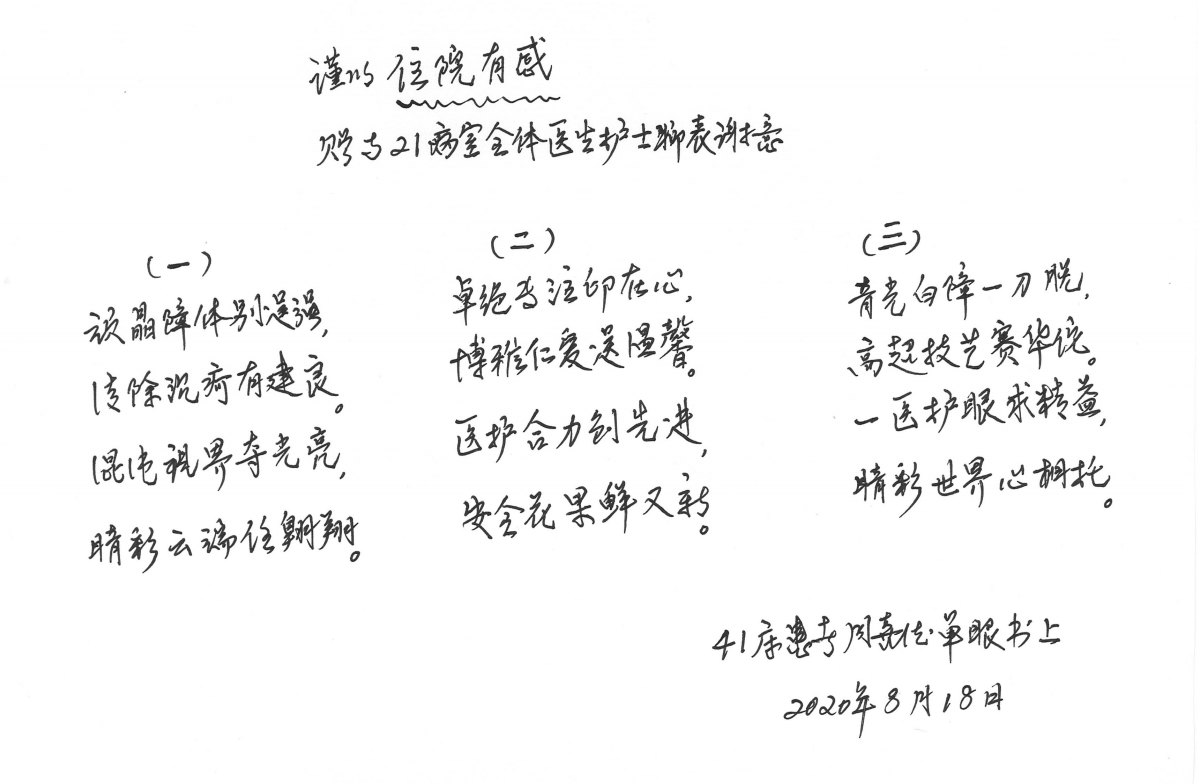 谨以住院有感
赠与21病室全体医生护士聊表谢意
（一）
该晶障体别逞强，
清除沉疴有建良。
混沌视界夺光亮，
睛彩云端任翱翔。
（二）
卓绝专注印在心，
博雅仁爱送温馨。
医护合力创先进，
安全花果鲜又新。
（三）
青光白障一刀脱，
高超技艺赛华佗。
一医护眼求精益，
睛彩世界心相托。
41床患者周 单眼书上
2020年8月18日